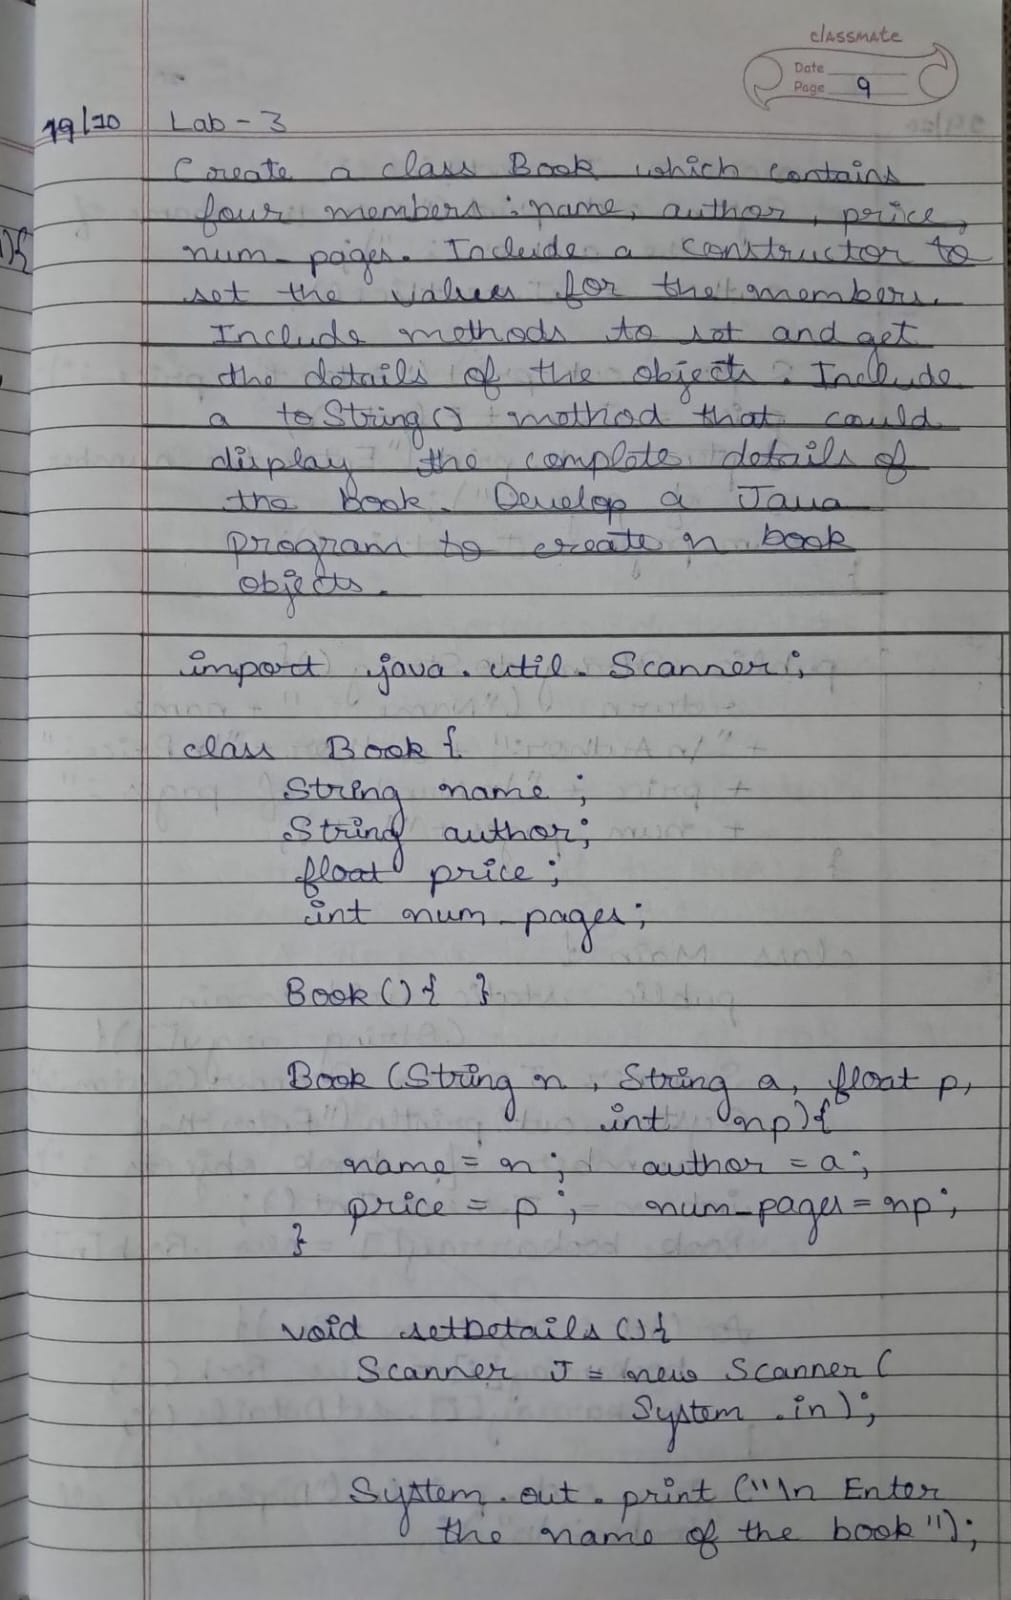 classmate
Date
Page 9
19/10 Lab - 3
Create a class Book which contains
four members : name, author, price,
num_pages. Include a constructor to
set the values for the members.
Include methods to set and get
the details of the objects. Include
a toString() method that could
display the complete details of
the book. Develop a Java
program to create n book
objects.
import java.util.Scanner;
class Book {
String name ;
String author;
float price ;
int num_pages;
Book () { }
Book (String n, String a, float p,
int np) {
name = n ; author = a ;
price = p ; num_pages = np ;
}
void setDetails () {
Scanner J = new Scanner (
System.in) ;
System.out.print ("\n Enter
the name of the book");